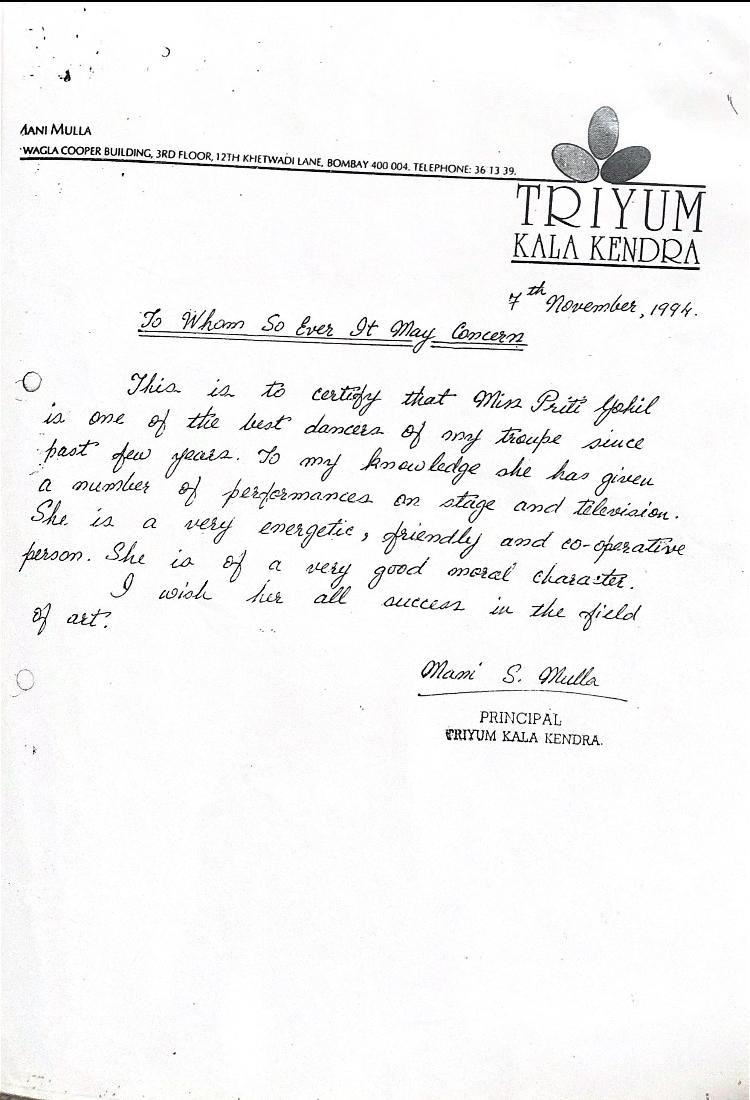 MANI MULLA
WAGLA COOPER BUILDING, 3RD FLOOR, 12TH KHETWADI LANE, BOMBAY 400 004. TELEPHONE: 36 13 39.
TRIYUM
KALA KENDRA
7th November, 1994.
To Whom So Ever It May Concern
This is to certify that Miss Priti Gohil
is one of the best dancers of my troupe since
past few years. To my knowledge she has given
a number of performances on stage and television.
She is a very energetic, friendly and co-operative
person. She is of a very good moral character.
I wish her all success in the field
of art.
Mani S. Mulla
PRINCIPAL
TRIYUM KALA KENDRA.